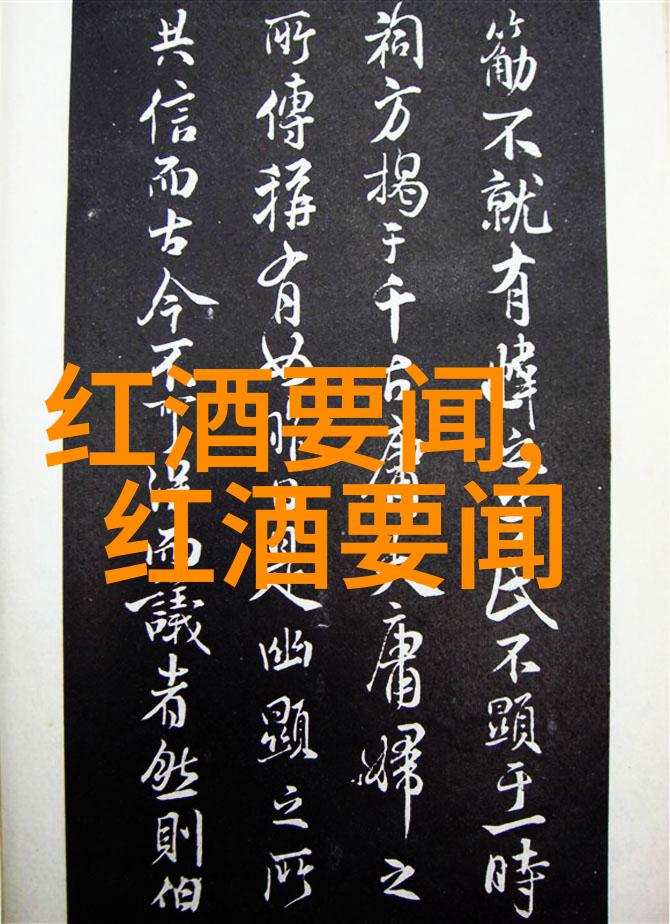 红酒要闻,
红酒要闻
不就有之民不顯于一時
祠方揭于千古庸夫庸婦之
所傳稱有如是幽顯之所
共信而古今不可得而議者然則伯